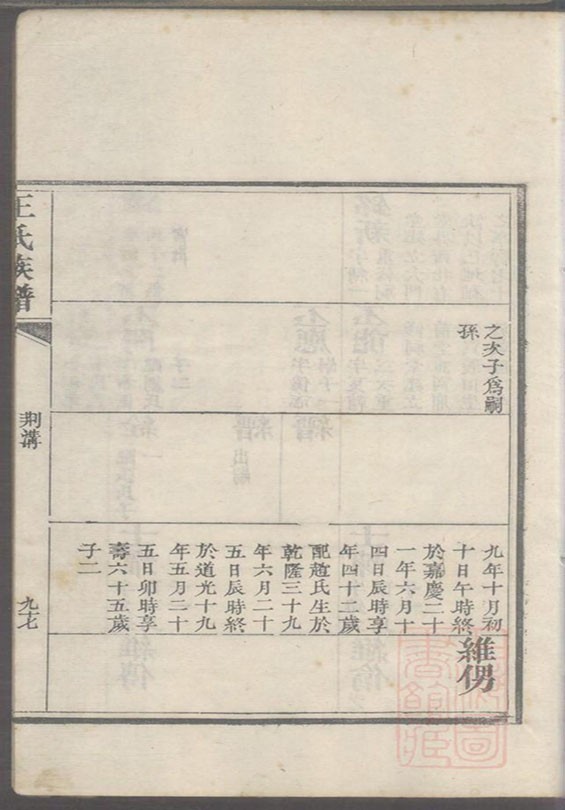 之次子爲嗣
孫
九年十月初
十日午時終
於嘉慶二十
一年六月十
四日辰時享
年四十二歲
配趙氏生於
乾隆三十九
年六月二十
五日辰時終
於道光十九
年五月二十
五日卯時享
壽六十五歲
子二
維侽
王氏族譜
荆溝
九七